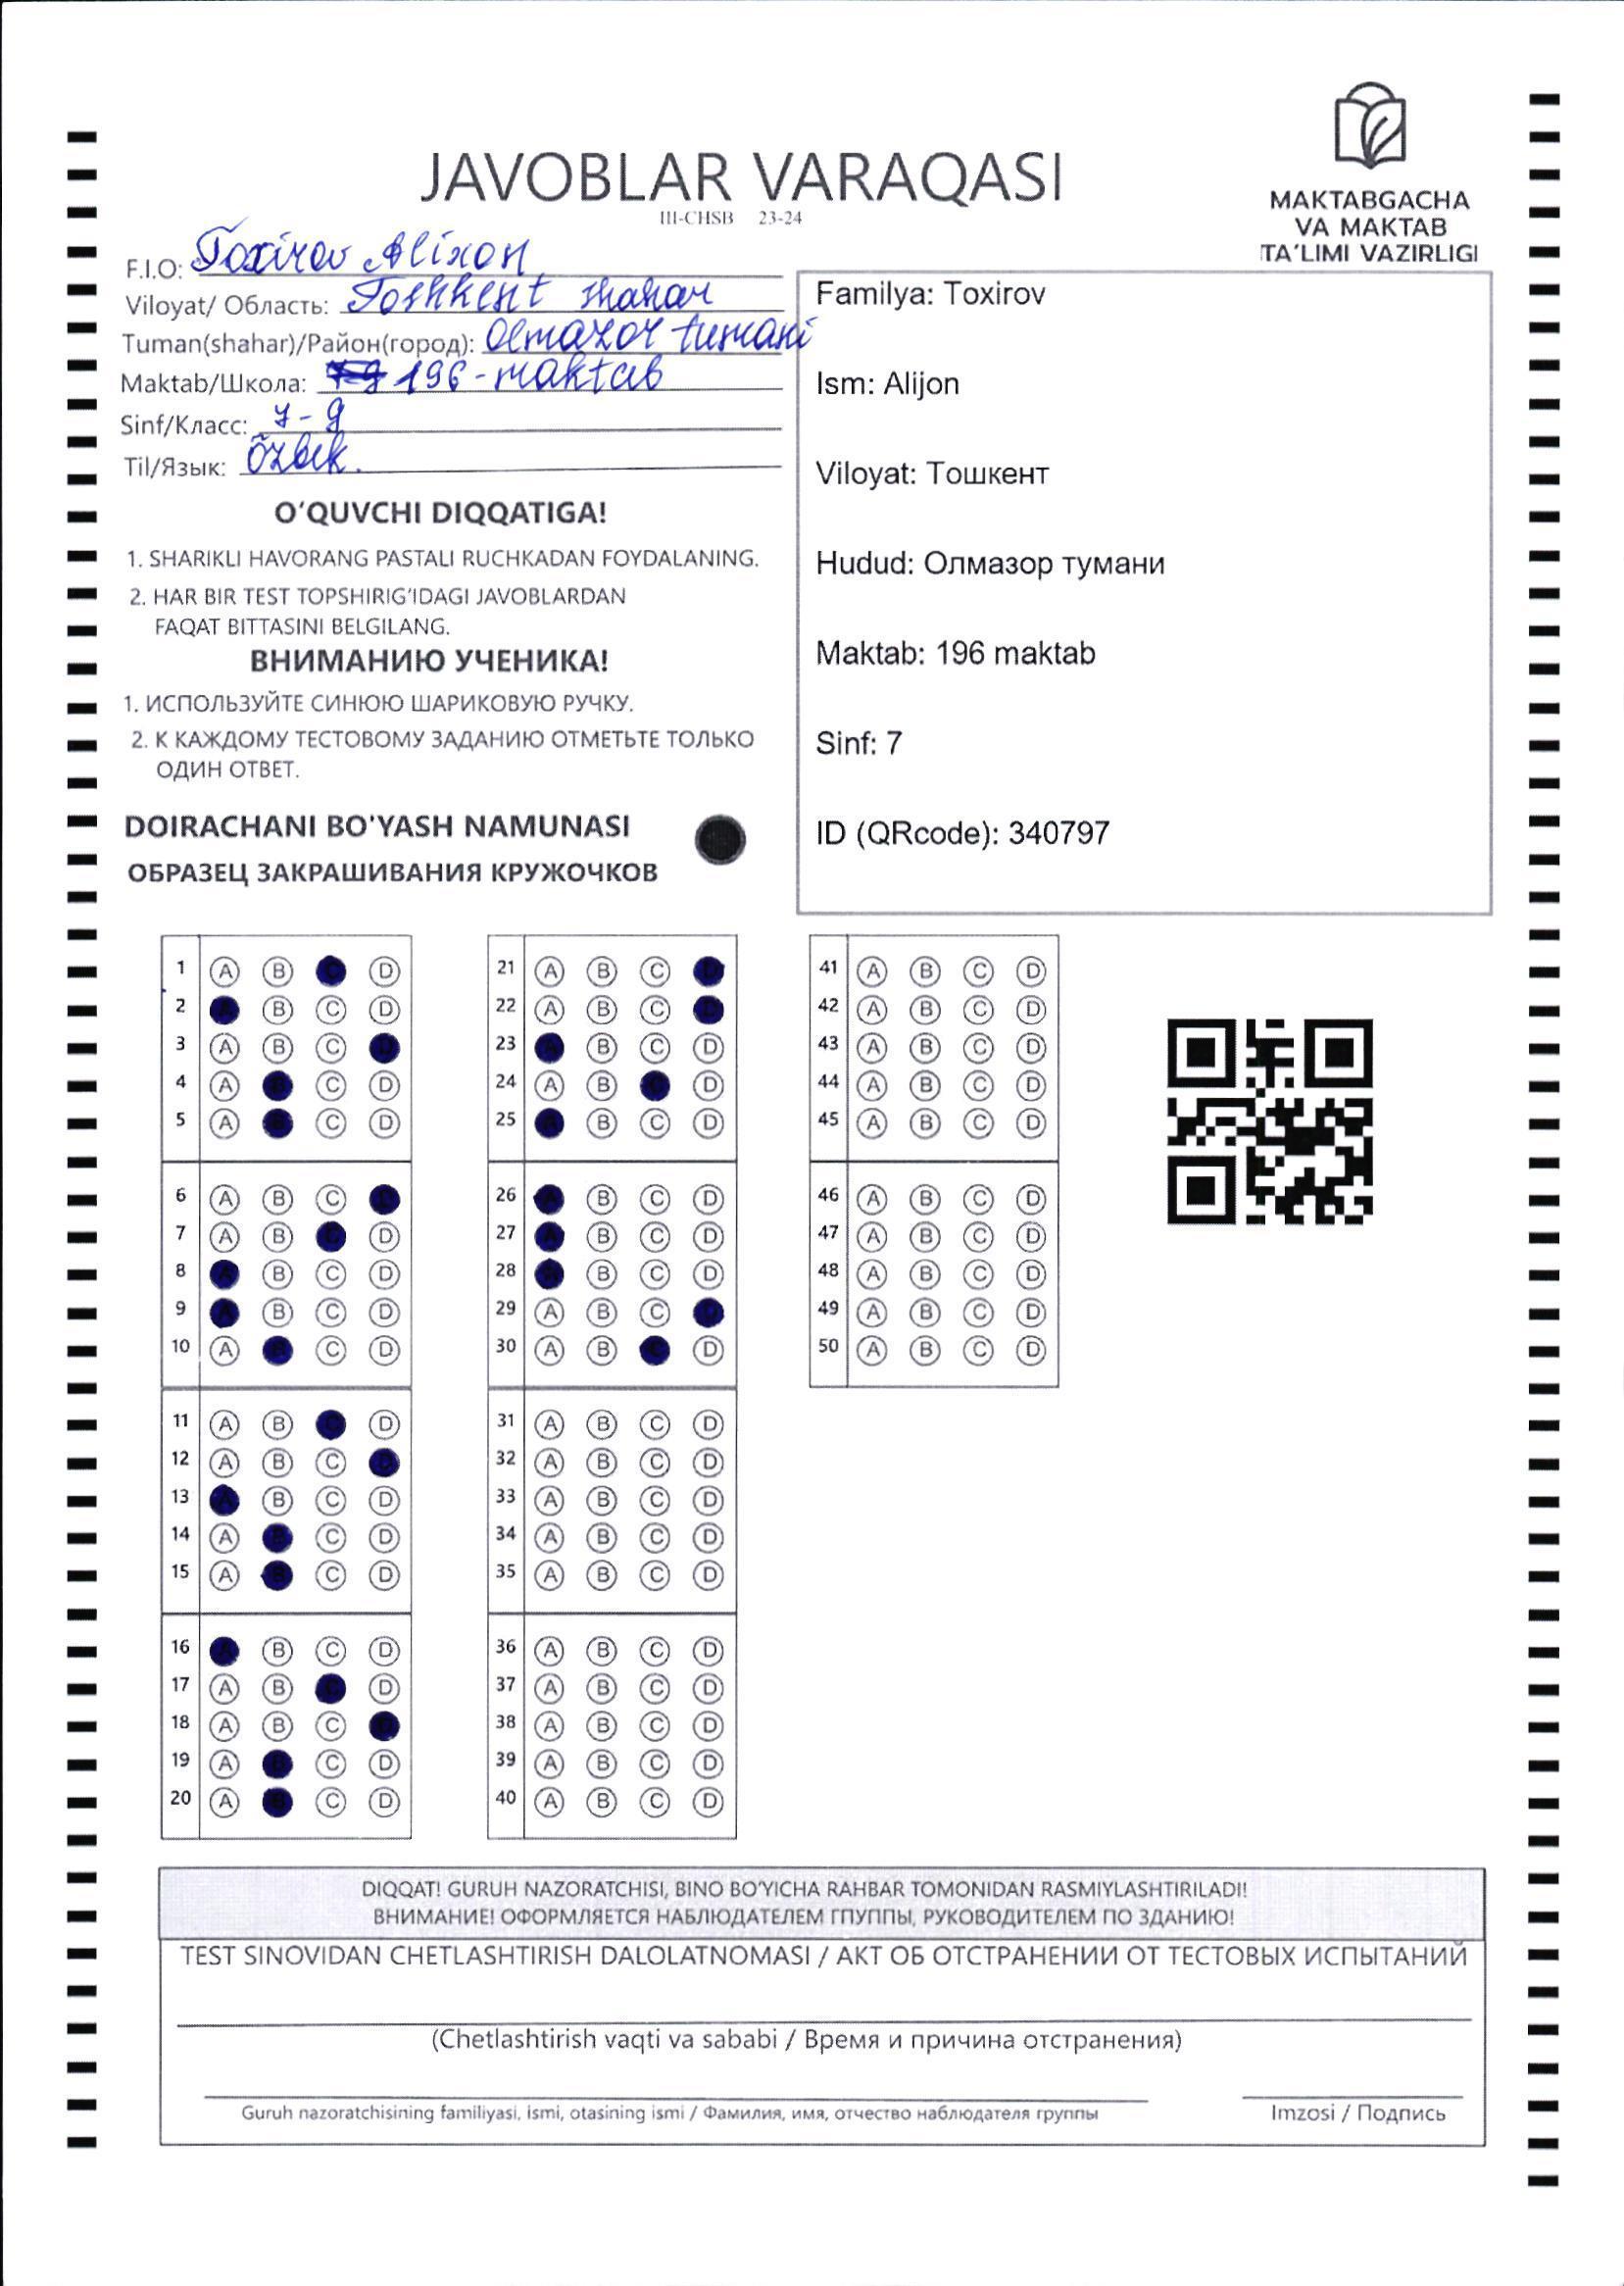 JAVOBLAR VARAQASI
III-CHSB 23-24
MAKTABGACHA
VA MAKTAB
TA'LIMI VAZIRLIGI
F.I.O: Toxirov Alixon
Viloyat/ Область: Toshkent shahar
Tuman(shahar)/Район(город): Olmazor tumani
Maktab/Школа: 196-maktab
Sinf/Класс: 7-g
Til/Язык: Õzbek.
O'QUVCHI DIQQATIGA!
1. SHARIKLI HAVORANG PASTALI RUCHKADAN FOYDALANING.
2. HAR BIR TEST TOPSHIRIG'IDAGI JAVOBLARDAN
FAQAT BITTASINI BELGILANG.
ВНИМАНИЮ УЧЕНИКА!
1. ИСПОЛЬЗУЙТЕ СИНЮЮ ШАРИКОВУЮ РУЧКУ.
2. К КАЖДОМУ ТЕСТОВОМУ ЗАДАНИЮ ОТМЕТЬТЕ ТОЛЬКО
ОДИН ОТВЕТ.
DOIRACHANI BO'YASH NAMUNASI
ОБРАЗЕЦ ЗАКРАШИВАНИЯ КРУЖОЧКОВ
Familya: Toxirov
Ism: Alijon
Viloyat: Тошкент
Hudud: Олмазор тумани
Maktab: 196 maktab
Sinf: 7
ID (QRcode): 340797
1 A B C D
2 A B C D
3 A B C D
4 A B C D
5 A B C D
6 A B C D
7 A B C D
8 A B C D
9 A B C D
10 A B C D
11 A B C D
12 A B C D
13 A B C D
14 A B C D
15 A B C D
16 A B C D
17 A B C D
18 A B C D
19 A B C D
20 A B C D
21 A B C D
22 A B C D
23 A B C D
24 A B C D
25 A B C D
26 A B C D
27 A B C D
28 A B C D
29 A B C D
30 A B C D
31 A B C D
32 A B C D
33 A B C D
34 A B C D
35 A B C D
36 A B C D
37 A B C D
38 A B C D
39 A B C D
40 A B C D
41 A B C D
42 A B C D
43 A B C D
44 A B C D
45 A B C D
46 A B C D
47 A B C D
48 A B C D
49 A B C D
50 A B C D
DIQQAT! GURUH NAZORATCHISI, BINO BO'YICHA RAHBAR TOMONIDAN RASMIYLASHTIRILADI!
ВНИМАНИЕ! ОФОРМЛЯЕТСЯ НАБЛЮДАТЕЛЕМ ГПУППЫ, РУКОВОДИТЕЛЕМ ПО ЗДАНИЮ!
TEST SINOVIDAN CHETLASHTIRISH DALOLATNOMASI / АКТ ОБ ОТСТРАНЕНИИ ОТ ТЕСТОВЫХ ИСПЫТАНИЙ
(Chetlashtirish vaqti va sababi / Время и причина отстранения)
Guruh nazoratchisining familiyasi, ismi, otasining ismi / Фамилия, имя, отчество наблюдателя группы
Imzosi / Подпись